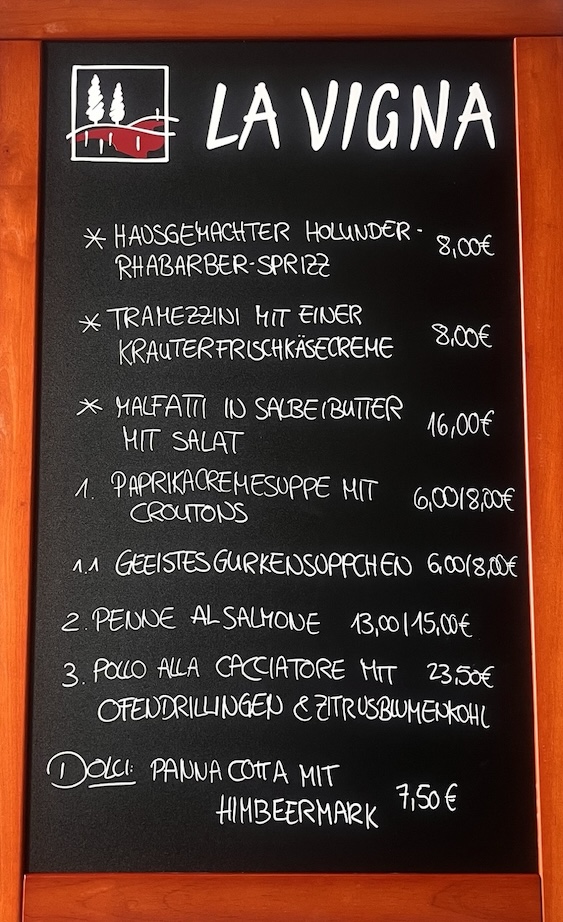 LA VIGNA
* HAUSGEMACHTER HOLUNDER- 8,00€
RHABARBER-SPRIZZ
* TRAMEZZINI MIT EINER
KRÄUTERFRISCHKÄSECREME 8,00€
* MALFATTI IN SALBEIBUTTER
MIT SALAT 16,00€
1. PAPRIKACREMESUPPE MIT 6,00/8,00€
CROUTONS
1.1 GEEISTES GURKENSÜPPCHEN 6,00/8,00€
2. PENNE AL SALMONE 13,00/15,00€
3. POLLO ALLA CACCIATORE MIT 23,50€
OFENDRILLINGEN & ZITRUSBLUMENKOHL
DOLCI: PANNA COTTA MIT
HIMBEERMARK 7,50€